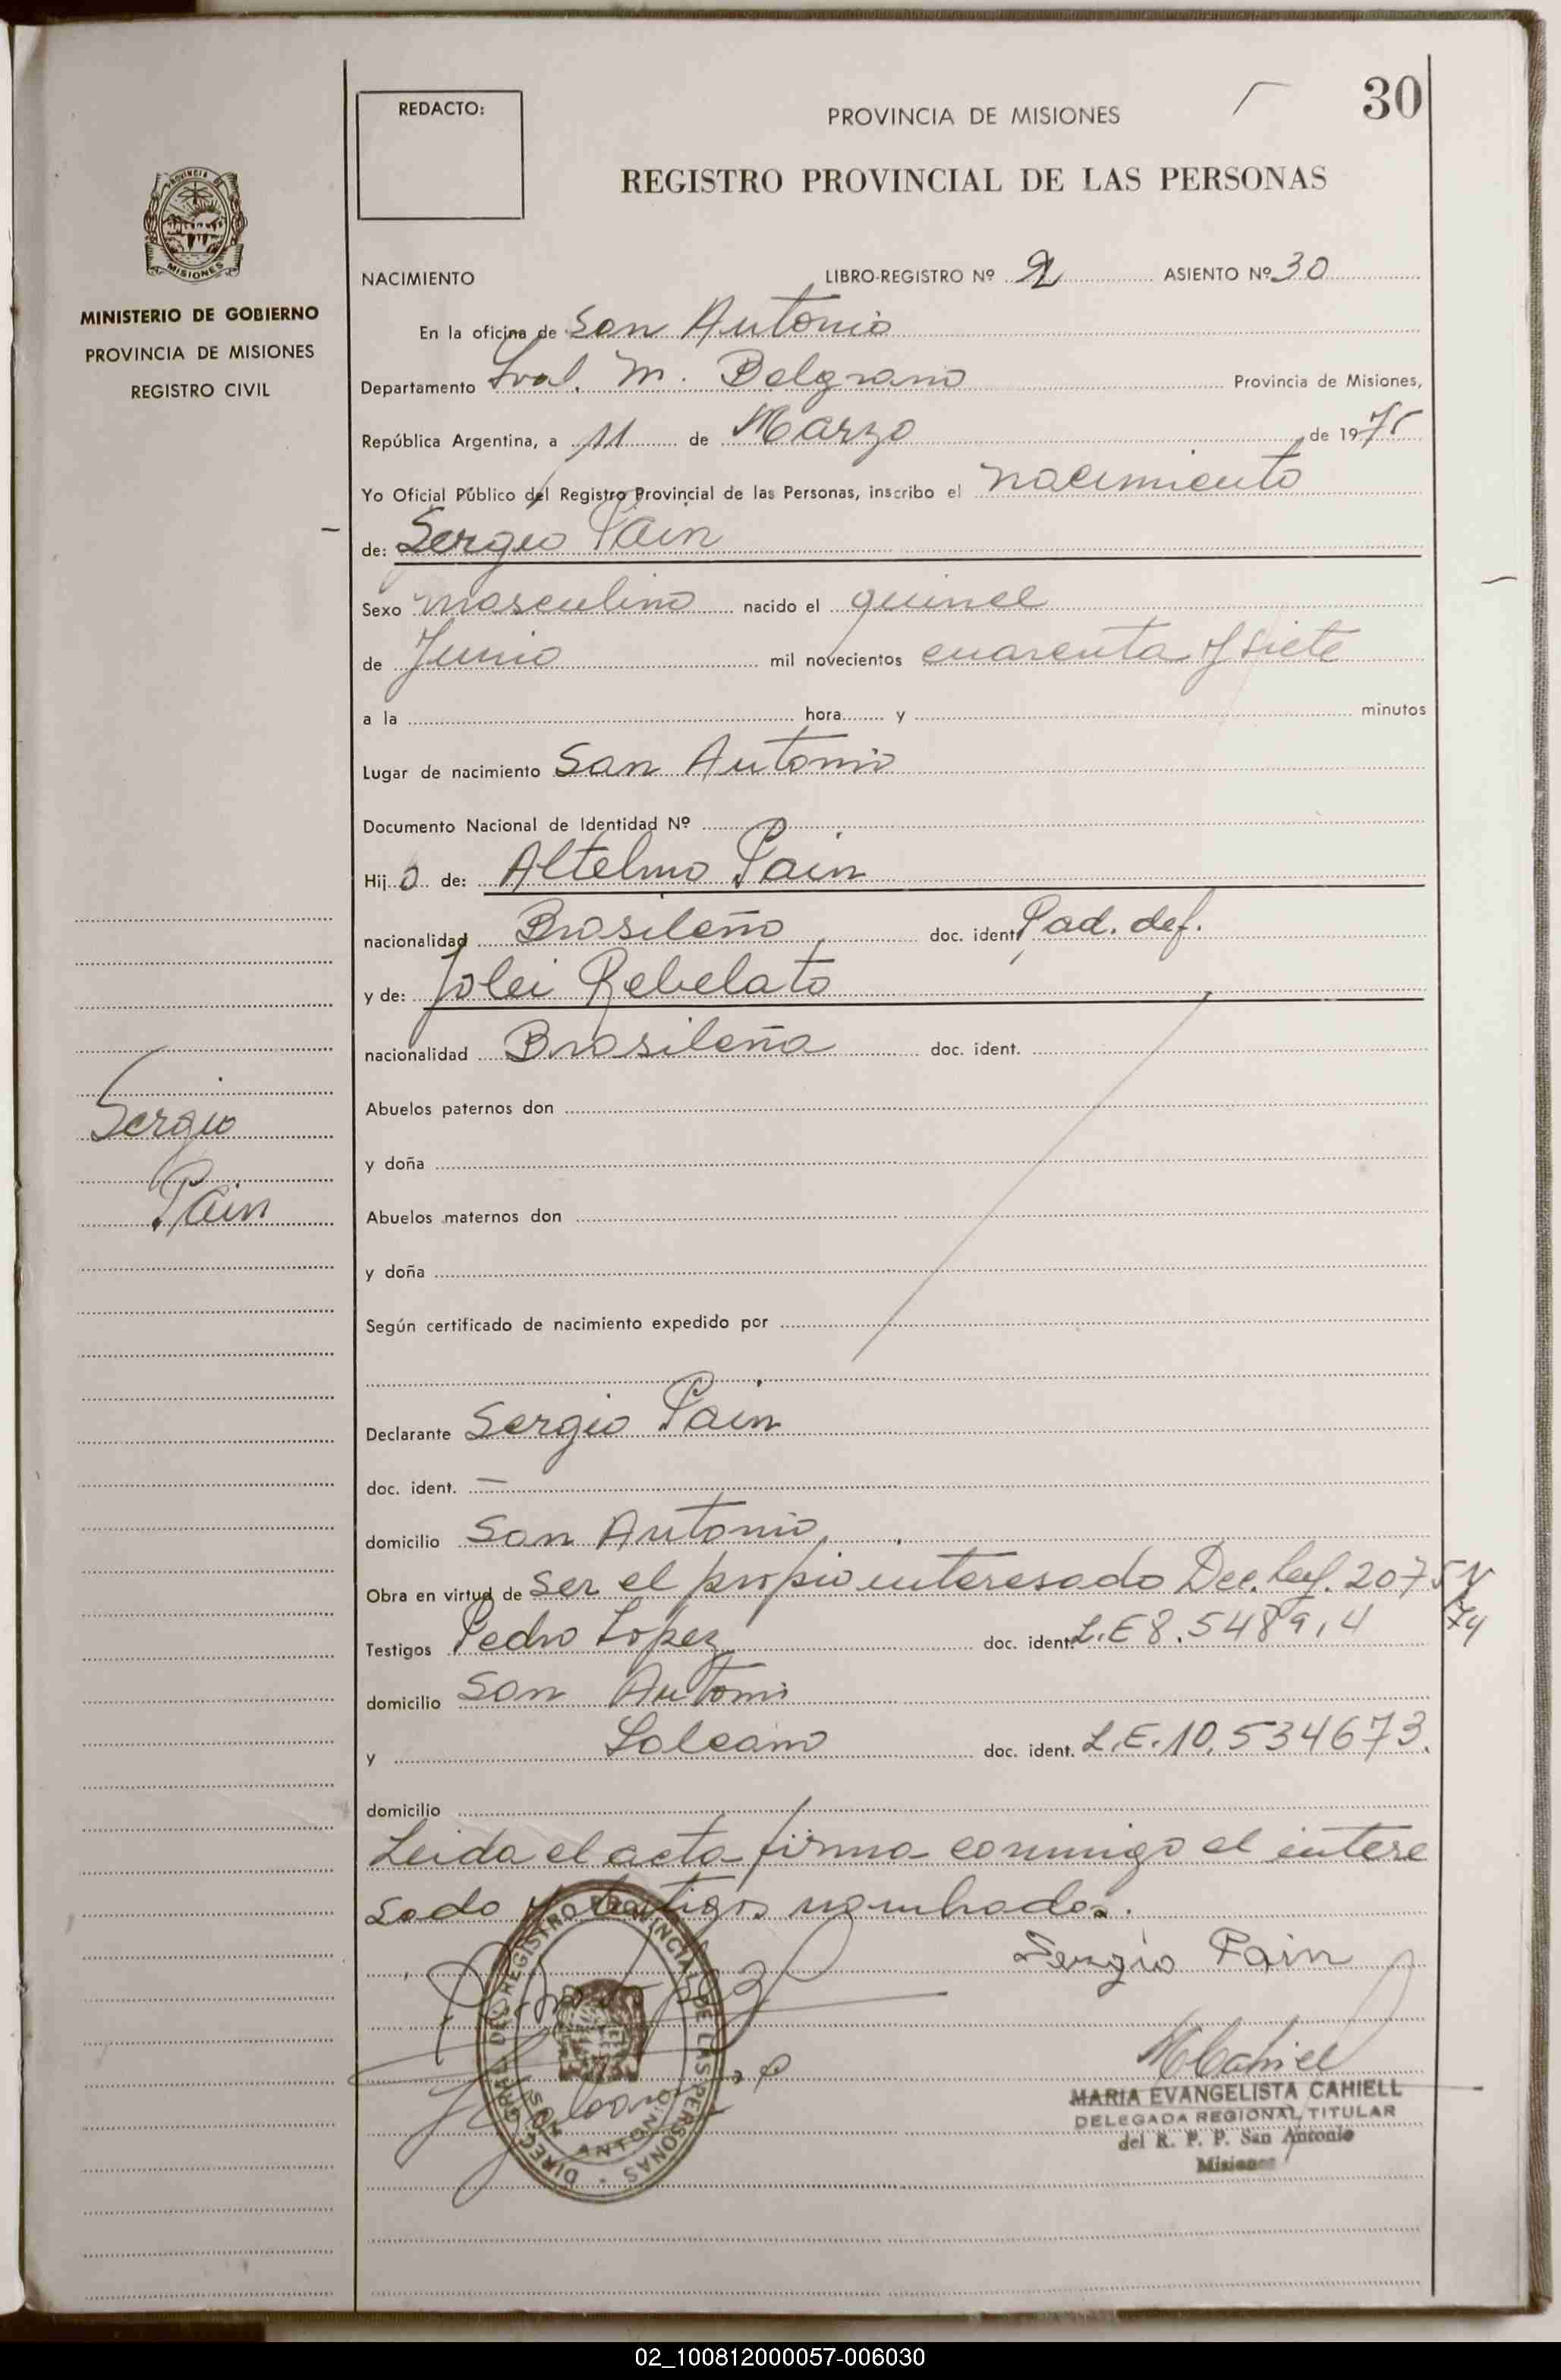 30
REDACTO:
PROVINCIA DE MISIONES
REGISTRO PROVINCIAL DE LAS PERSONAS
PROVINCIA DE
MISIONES
MINISTERIO DE GOBIERNO
PROVINCIA DE MISIONES
REGISTRO CIVIL
NACIMIENTO LIBRO-REGISTRO Nº 2 ASIENTO Nº 30
En la oficina de San Antonio
Departamento Gral. M. Belgrano Provincia de Misiones,
República Argentina, a 11 de Marzo de 1975
Yo Oficial Público del Registro Provincial de las Personas, inscribo el nacimiento
de: Sergio Pain
Sexo masculino nacido el quince
de Junio mil novecientos cuarenta y siete
a la hora y minutos
Lugar de nacimiento San Antonio
Documento Nacional de Identidad Nº
Hij o de: Altelmo Pain
nacionalidad Brasileño doc. ident. Pad. def.
y de: Jolei Rebelato
nacionalidad Brasileña doc. ident.
Abuelos paternos don
y doña
Abuelos maternos don
y doña
Según certificado de nacimiento expedido por
Sergio
Pain
Declarante Sergio Pain
doc. ident. —
domicilio San Antonio
Obra en virtud de ser el propio interesado Dec. Ley. 2075
74
Testigos Pedro Lopez doc. ident. L.E 8.5489,4
domicilio San Antoni
y Solcano doc. ident. L.E. 10.534673.
domicilio
Leida el acta firma conmigo el intere
sado y testigos nombrados.
Sergio Pain
DIREC. GRAL. DEL REGISTRO PROVINCIAL DE LAS PERSONAS
SAN ANTONIO
MCahiell
MARIA EVANGELISTA CAHIELL
DELEGADA REGIONAL TITULAR
del R. P. P. San Antonio
Misiones
02_100812000057-006030